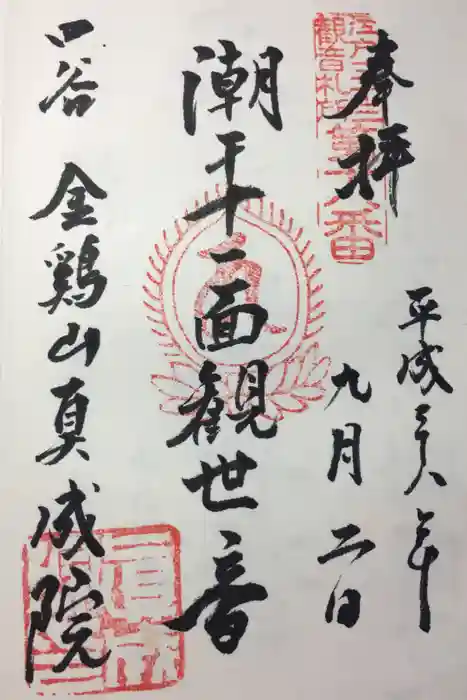 江戸三十三観音札所第十八番
奉拝
平成二十八年
九月二日
潮干十一面観世音
四谷 金鶏山真成院